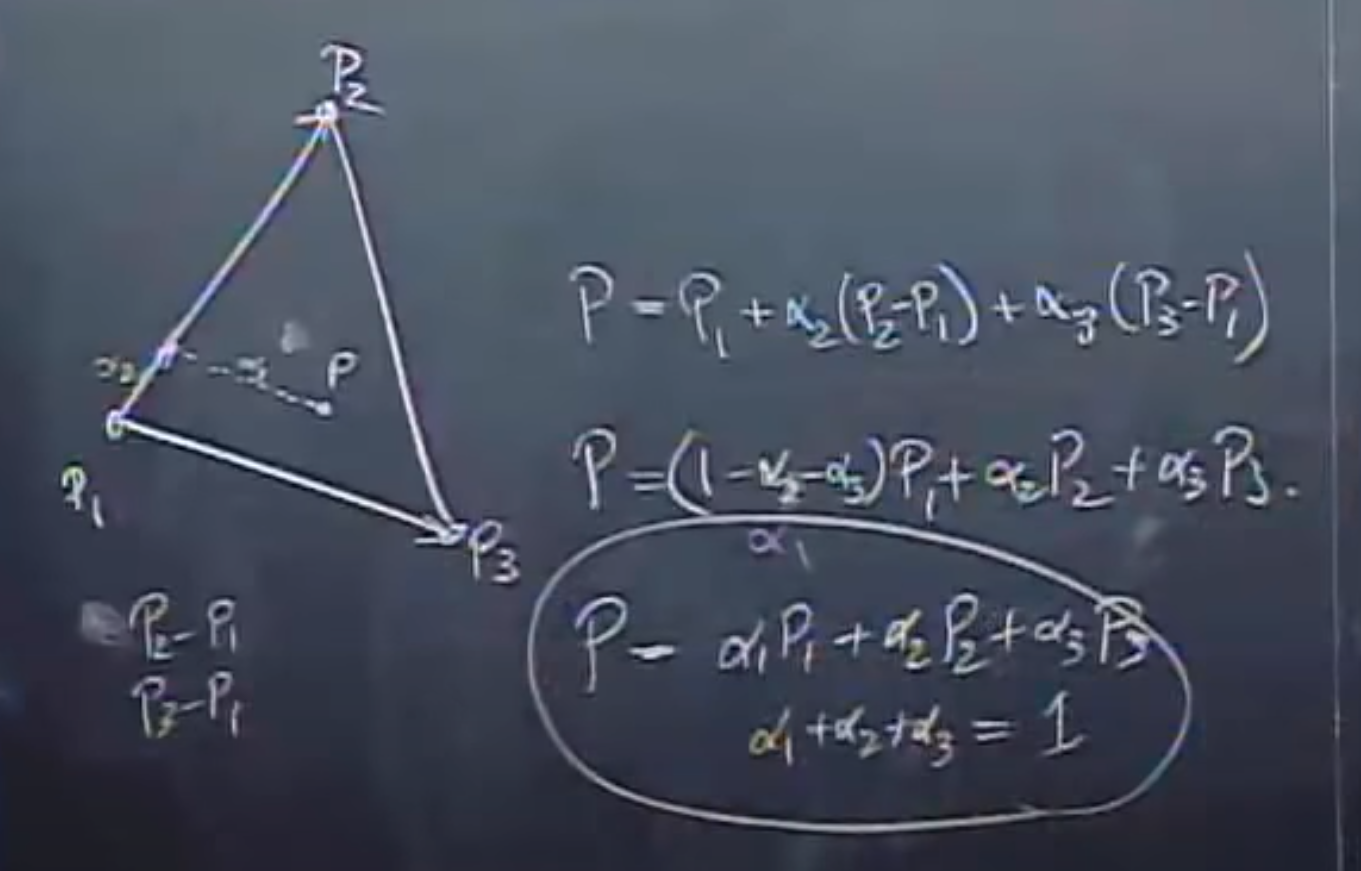 P₂
α₂
α₃
P
P₁
P₃
P₂-P₁
P₃-P₁
P = P₁ + α₂(P₂-P₁) + α₃(P₃-P₁)
P = (1-α₂-α₃)P₁ + α₂P₂ + α₃P₃.
α₁
P = α₁P₁ + α₂P₂ + α₃P₃
α₁+α₂+α₃ = 1